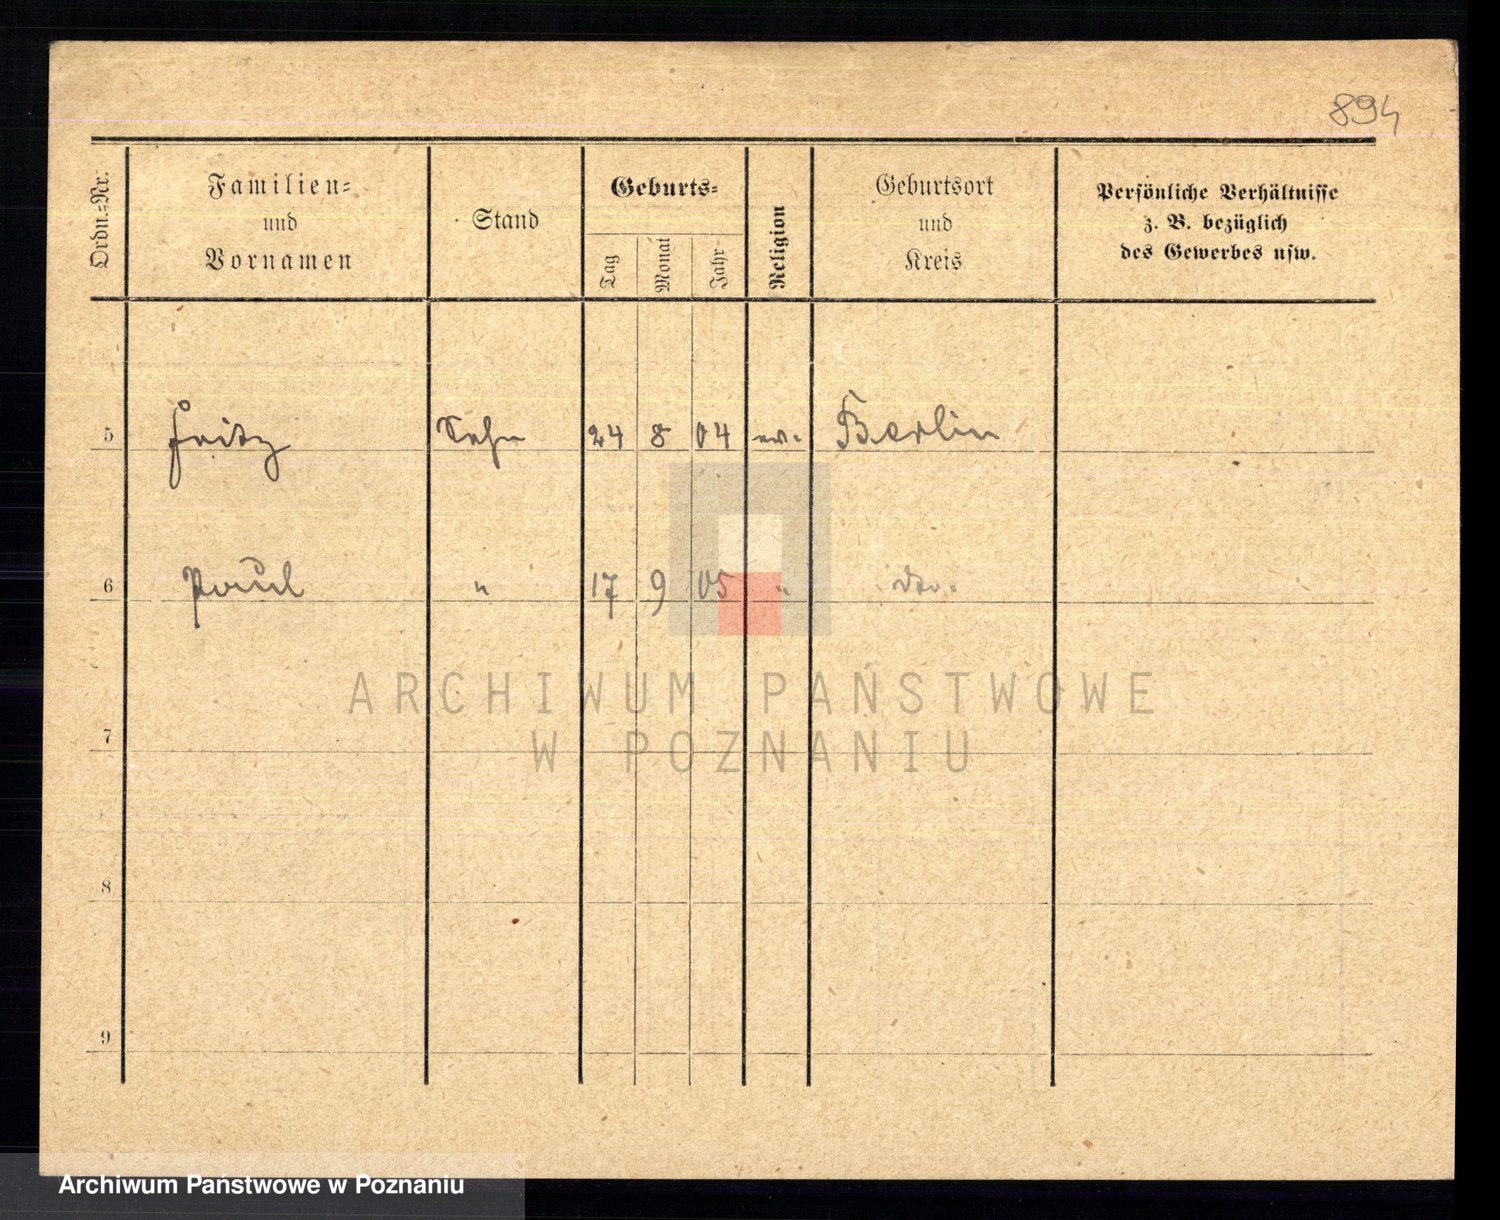 894
Ordn.-Nr.
Familien-
und
Vornamen
Stand
Geburts-
Tag
Monat
Jahr
Religion
Geburtsort
und
Kreis
Persönliche Verhältnisse
z. B. bezüglich
des Gewerbes usw.
5 Fritz Sohn 24 8 04 ev. Berlin
6 Paul " 17 9 05 " dto.
7
8
9
ARCHIWUM PAŃSTWOWE
W POZNANIU
Archiwum Państwowe w Poznaniu